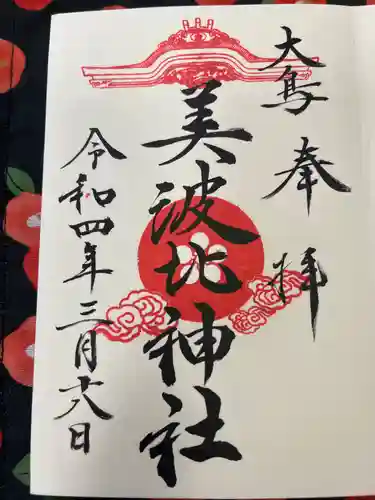 大島 奉拝
美波比神社
令和四年三月十八日